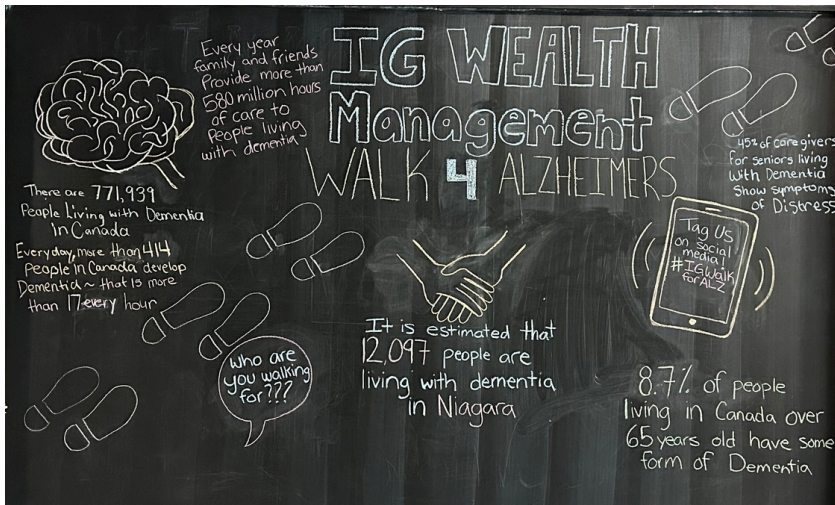 IG WEALTH
Management
WALK 4 ALZHEIMERS
Every year
family and friends
Provide more than
580 million hours
of care to
People living
with dementia
There are 771,939
People Living with Dementia
In Canada
Everyday, more than 414
people in Canada develop
Dementia ~ that is more
than 17 every hour
who are
you walking
for???
It is estimated that
12,097 people are
living with dementia
in Niagara
45% of care givers
for seniors living
with Dementia
Show symptoms
of Distress
Tag Us
on social
media!
#IGWalk
forALZ
8.7% of people
living in Canada over
65 years old have some
form of Dementia